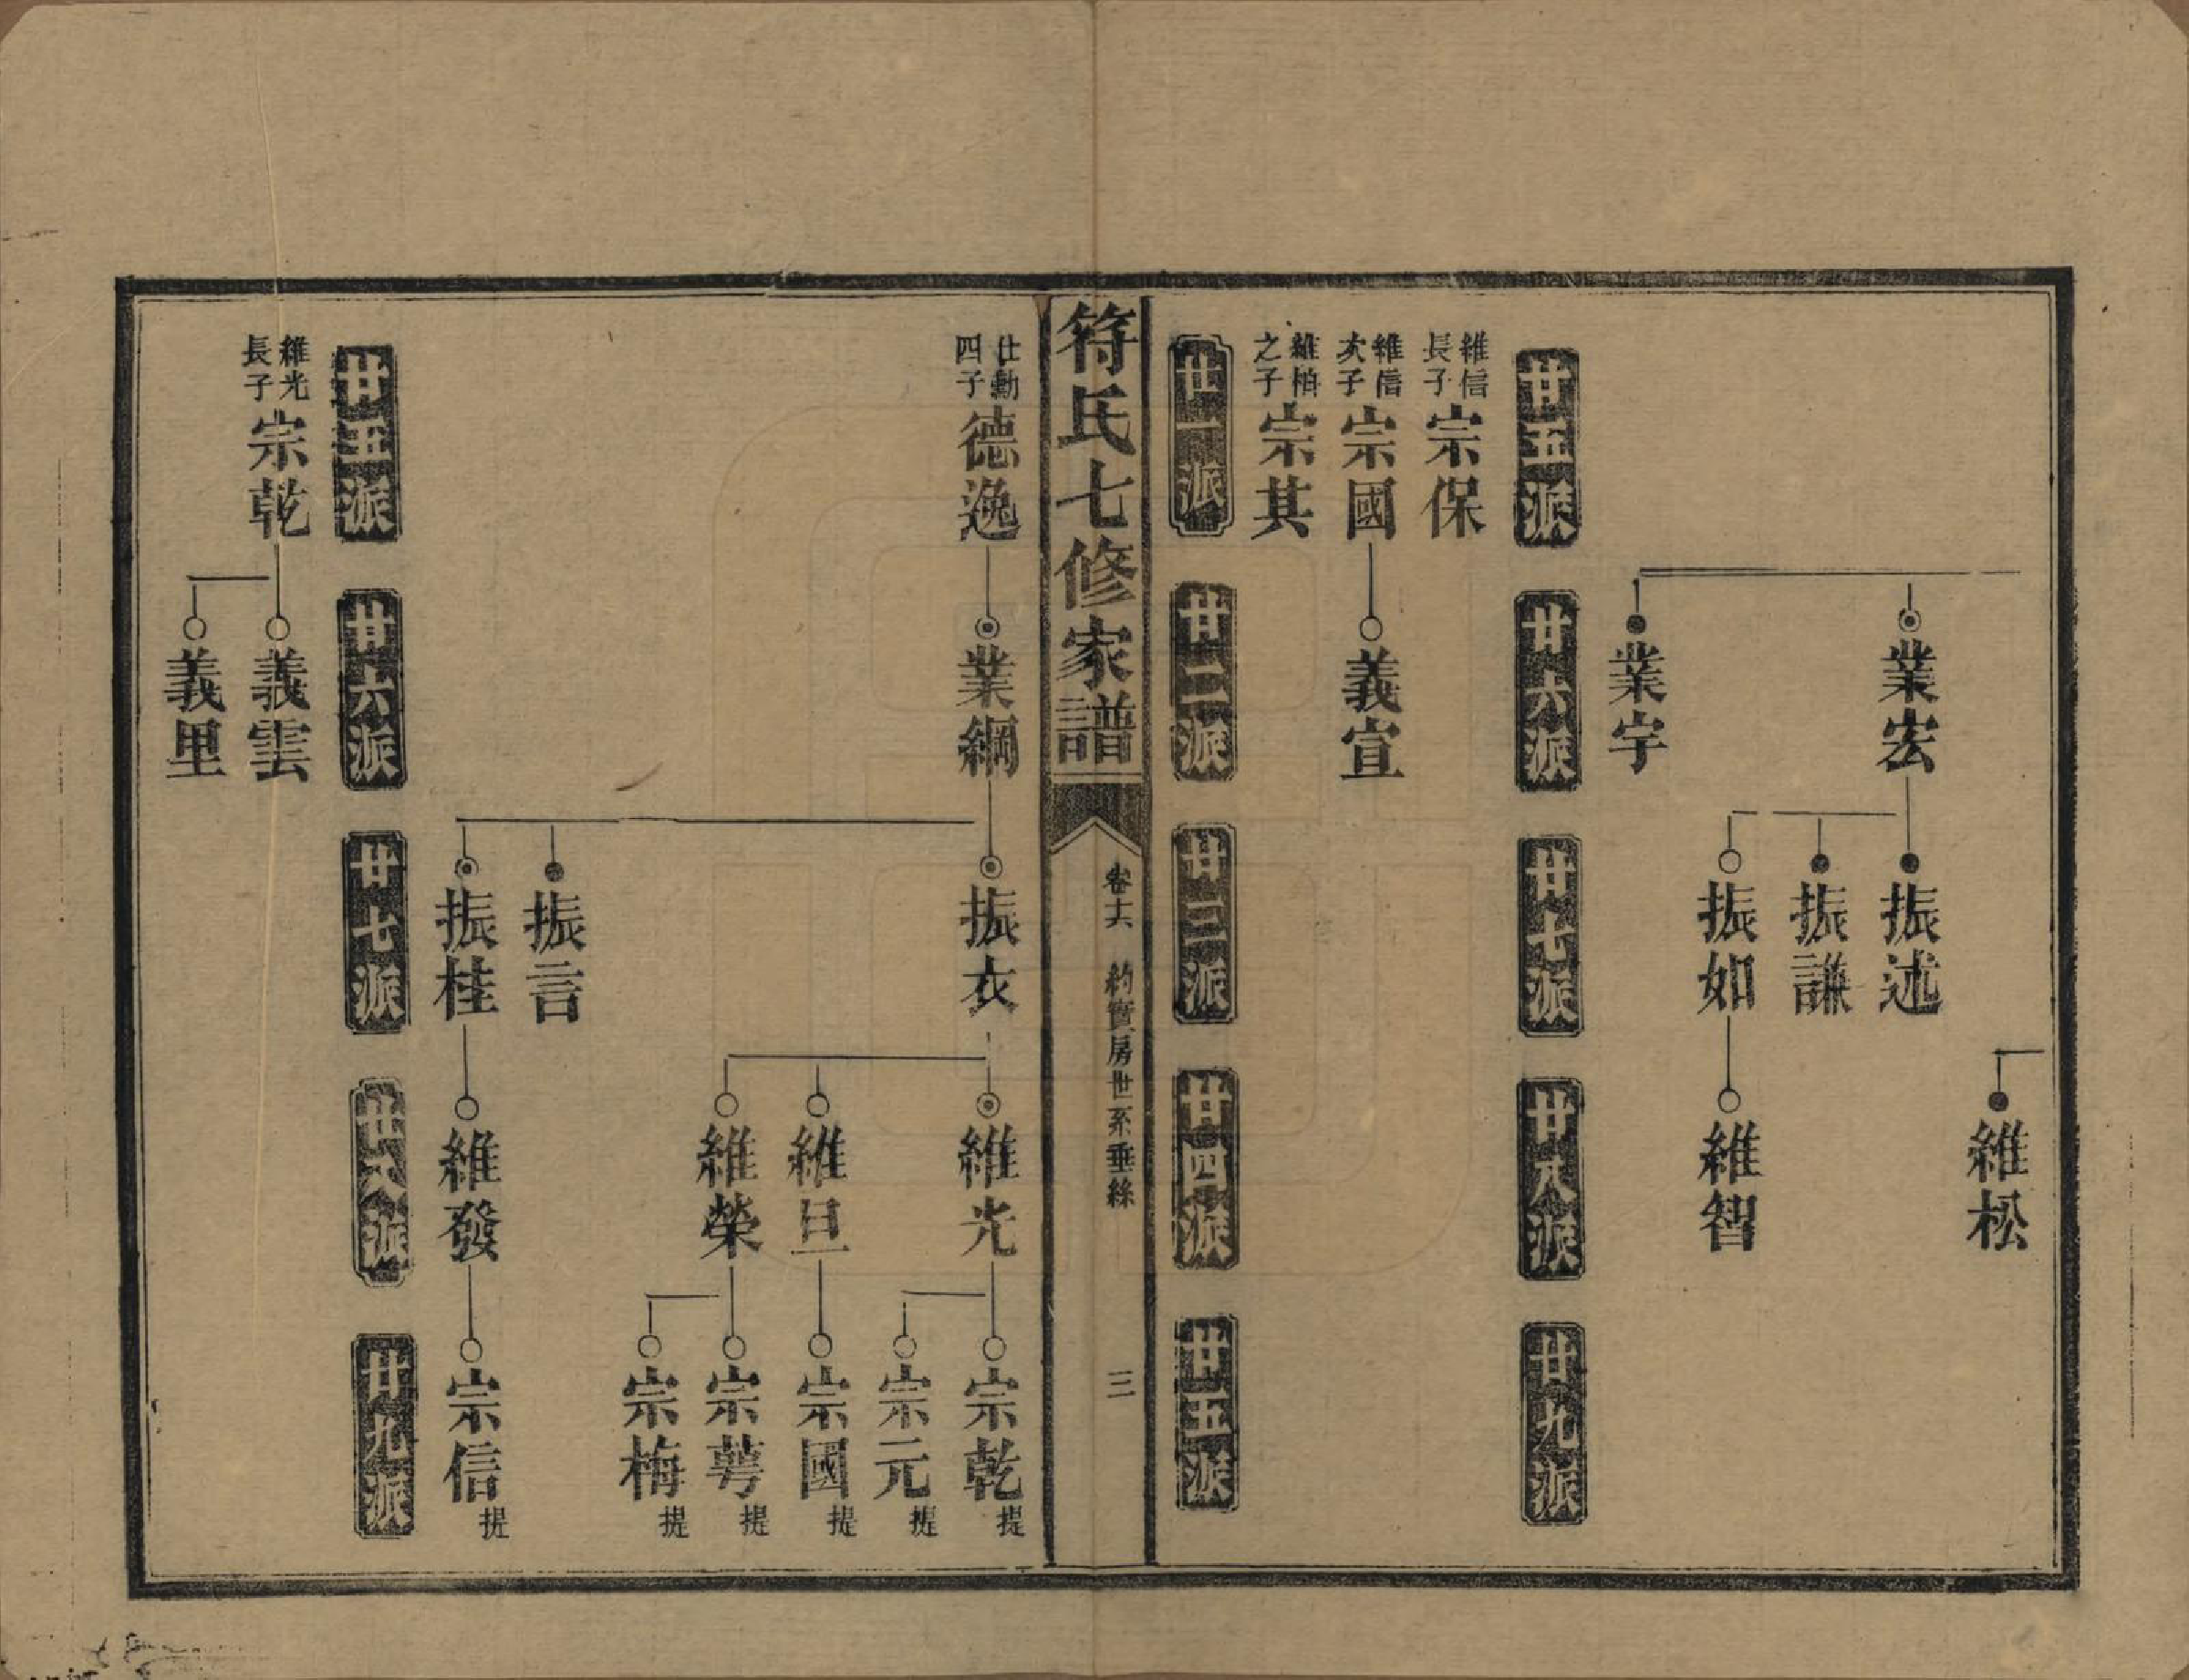 維松
業宏
振述
振謙
振如
維智
業宇
廿五派
廿六派
廿七派
廿八派
廿九派
維信長子
宗保
維信次子
宗國
義宣
維柏之子
宗其
廿一派
廿二派
廿三派
廿四派
廿五派
符氏七修家譜
卷十六
約實房世系垂絲
三
仕勳四子
德逸
業綱
振衣
維光
宗乾提
宗元提
維旦
宗國提
維榮
宗萼提
宗梅提
振言
振桂
維發
宗信提
廿五派
廿六派
廿七派
廿八派
廿九派
維光長子
宗乾
義雲
義里